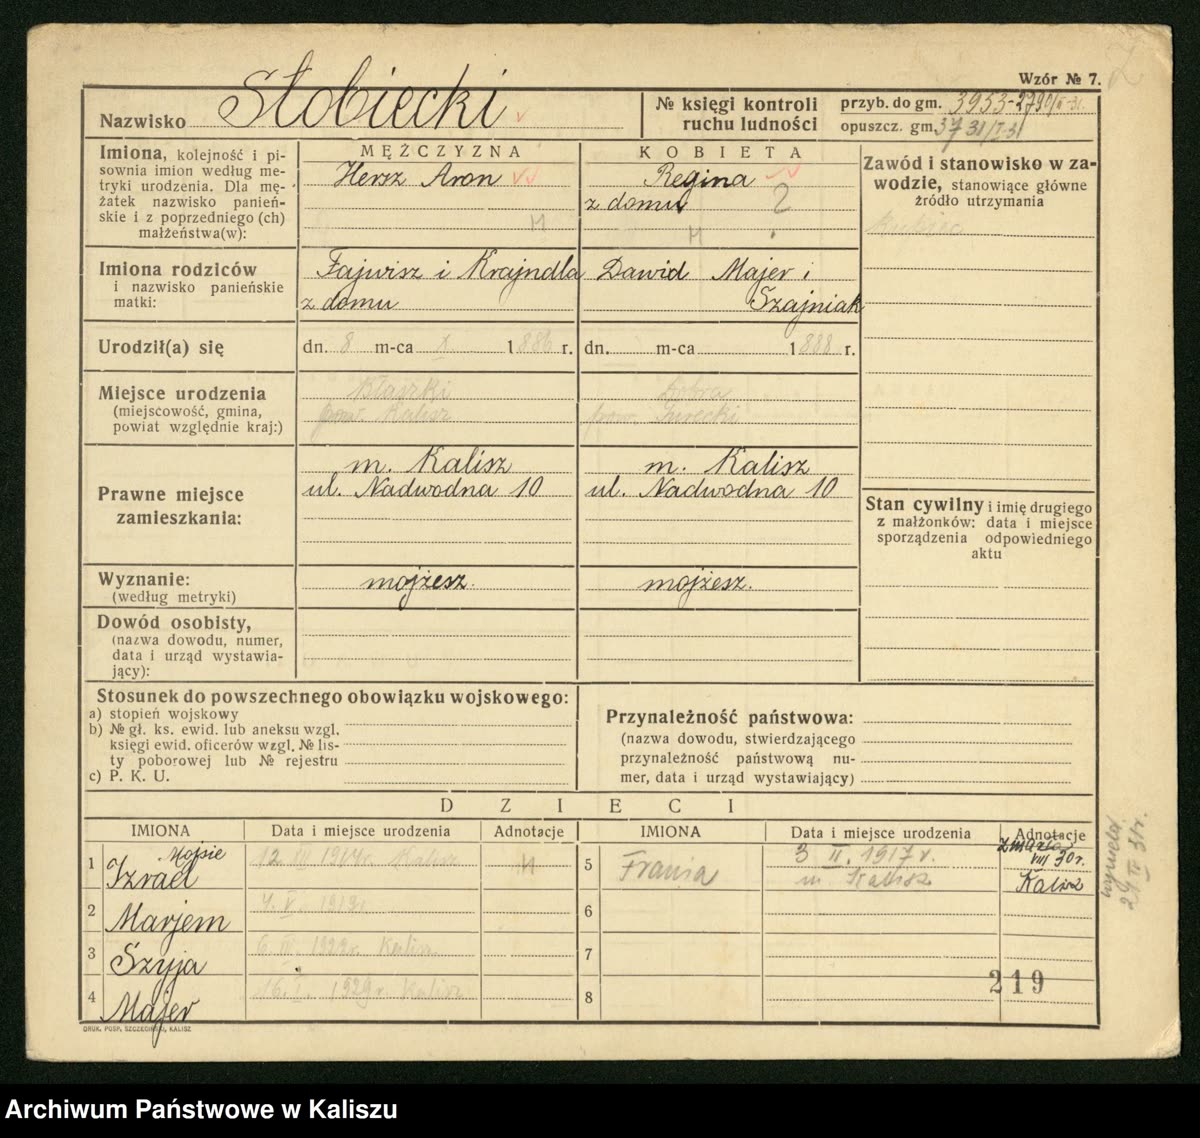 Wzór № 7.
Nazwisko Słobiecki
№ księgi kontroli ruchu ludności
przyb. do gm. 3953-2790/II-31.
opuszcz. gm. 3731/I 31
Imiona, kolejność i pi-
sownia imion według me-
tryki urodzenia. Dla mę-
żatek nazwisko panień-
skie i z poprzedniego (ch)
małżeństwa(w):
MĘŻCZYZNA
Hersz Aron
H
KOBIETA
Regina
z domu ?
H
Zawód i stanowisko w za-
wodzie, stanowiące główne
źródło utrzymania
Kupiec
Imiona rodziców
i nazwisko panieńskie
matki:
Fajwisz i Krajndla
z domu
Dawid Majer i
Szajniak
Urodził(a) się
dn. 8 m-ca X. 1886 r.
dn. m-ca 1888 r.
Miejsce urodzenia
(miejscowość, gmina,
powiat względnie kraj:)
Błaszki
pow. Kalisz
Dobra
pow. Turecki
Prawne miejsce
zamieszkania:
m. Kalisz
ul. Nadwodna 10
m. Kalisz
ul. Nadwodna 10
Stan cywilny i imię drugiego
z małżonków: data i miejsce
sporządzenia odpowiedniego
aktu
Wyznanie:
(według metryki)
mojżesz.
mojżesz.
Dowód osobisty,
(nazwa dowodu, numer,
data i urząd wystawia-
jący):
Stosunek do powszechnego obowiązku wojskowego:
a) stopień wojskowy
b) № gł. ks. ewid. lub aneksu wzgl.
księgi ewid. oficerów wzgl. № lis-
ty poborowej lub № rejestru
c) P. K. U.
Przynależność państwowa:
(nazwa dowodu, stwierdzającego
przynależność państwową nu-
mer, data i urząd wystawiający)
DZIECI
IMIONA
Data i miejsce urodzenia
Adnotacje
IMIONA
Data i miejsce urodzenia
Adnotacje
1 Izrael Mojsie
12. III 1914r. Kalisz
H
2 Marjem
4. V. 1919r.
3 Szyja
6. IV. 1922r. Kalisz
4 Majer
16. I. 1929r. Kalisz
5 Frania
3 II. 1917 r.
m. Kalisz
zmarła
VIII 30r.
Kalisz
6
7
8
219
29. IV 31r.
DRUK. POSP. SZCZECIŃSKI, KALISZ
Archiwum Państwowe w Kaliszu